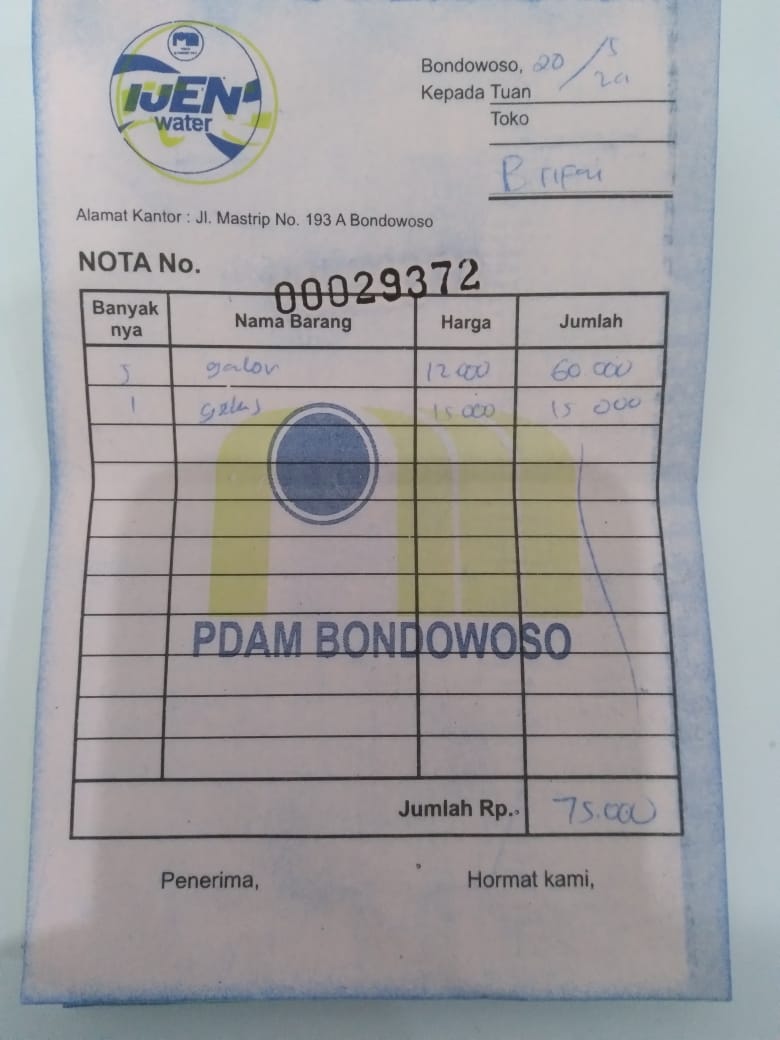 IJEN
water
Bondowoso, 20/5
Kepada Tuan
Toko
B rifai
Alamat Kantor : Jl. Mastrip No. 193 A Bondowoso
NOTA No. 00029372
Banyak nya Nama Barang Harga Jumlah
5 galon 12 000 60 000
1 15 000 15 000
PDAM BONDOWOSO
Jumlah Rp. 75.000
Penerima, Hormat kami,